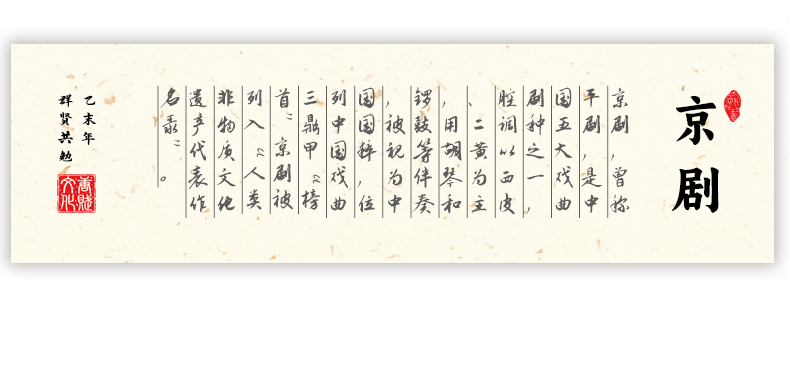 京剧
京剧，曾称
平剧，是中
国五大戏曲
剧种之一，
腔调以西皮
、二黄为主
，用胡琴和
锣鼓等伴奏
，被视为中
国国粹，位
列中国戏曲
三鼎甲“榜
首”京剧被
列入“人类
非物质文化
遗产代表作
名录”。
乙未年
群贤共勉
文化